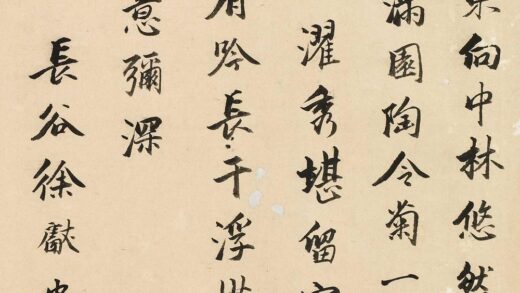 向中林悠然
滿園陶令菊一
濯秀堪留
吟長干浮
意彌深
長谷徐獻